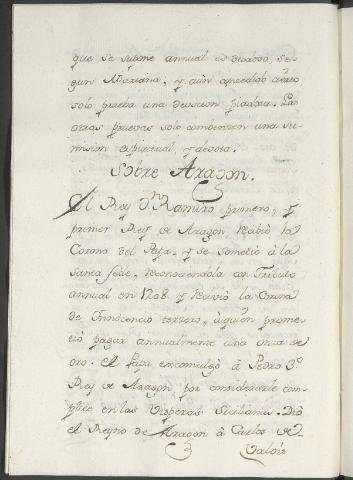 que se supone annual es dudoso, se-
gun Mariana, y aun concedido cierto
solo prueba una devocion piadosa. Las
otras pruevas solo combenzen una su-
mision espiritual, y devota.
Sobre Aragon.
El Rey Dn. Ramiro primero, y
primer Rey de Aragon, recibió la
Corona del Papa, y se sometió à la
Santa Sede, reconociendola con Tributo
annual en 1208. y recivió la Corona
de Innocencio tercero, à quien prome-
tió pagar annualmente una onza de
oro. El Papa excomulgó à Pedro 3º
Rey de Aragon por considerarle com-
plice en las Visperas Sicilianas. Dió
el Reyno de Aragon à Carlos de
Valois